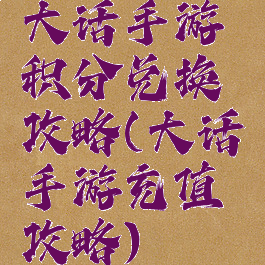 大话手游
积分兑换
攻略(大话
手游充值
攻略)